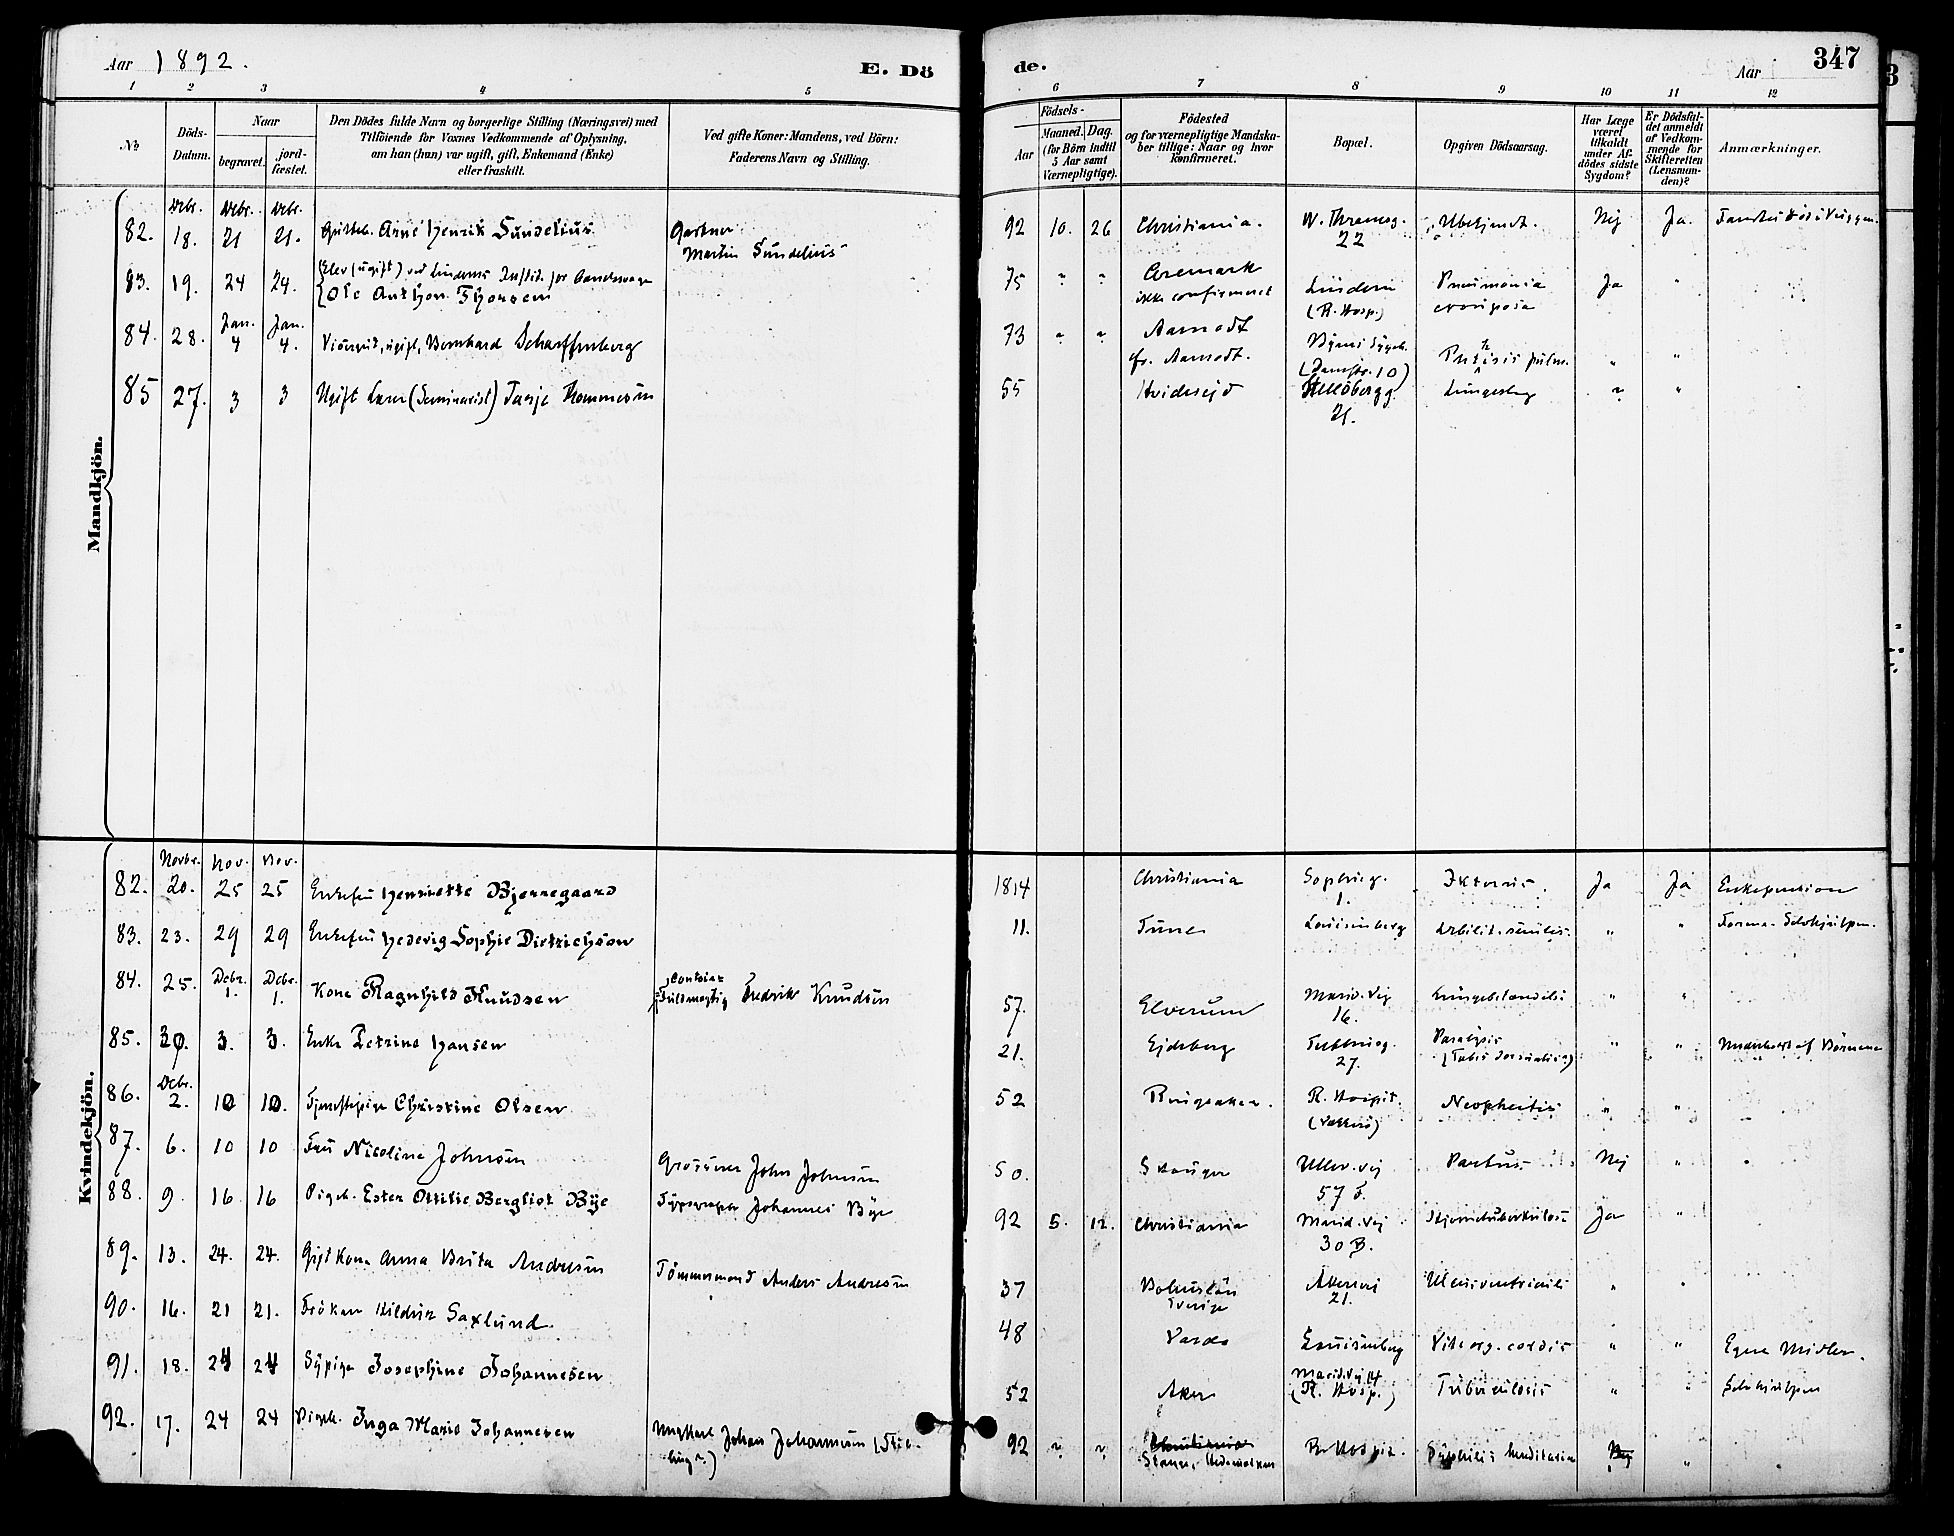 Aar 1892.
E. Dö
de.
Aar
347
1 2 3 4 5 6 7 8 9 10 11 12
No
Döds-Datum.
Naar
begravet.
jord-fæstet.
Den Dödes fulde Navn og borgerlige Stilling (Næringsvei) med
Tilföiende for Voxnes Vedkommende af Oplysning,
om han (hun) var ugift, gift, Enkemand (Enke)
eller fraskilt.
Ved gifte Koner: Mandens, ved Börn:
Faderens Navn og Stilling.
Födsels-
Aar
Maaned. Dag.
(for Börn indtil
5 Aar samt
Værnepligtige).
Födested
og for værnepligtige Mandska-
ber tillige: Naar og hvor
Konfirmeret.
Bopæl.
Opgiven Dödsaarsag.
Har Læge
været
tilkaldt
under Af-
dödes sidste
Sygdom?
Er Dödsfal-
det anmeldt
af Vedkom-
mende for
Skifteretten
(Lensman-
den)?
Anmærkninger.
Mandkjön.
Debr. Debr. Debr.
82. 18. 21 21. Arne Henrik Sundelius Gartner Martin Sundelius 92 10. 26 Christiania. W. Thranesg. 22 Ubekjendt. Nej Ja
83. 19. 24 24. Elev (ugift) ved Lindems Instit. for
Ole Anthon Thorsen 75 " " Aremark ikke confirmeret Lindern (R. Hosp.) Pneumonia crouposa Ja "
84. 28. Jan. 4 Jan. 4. ugift, Bernhard Scharffenberg 73 " " Aamodt fr. Aamodt. Byens Sygeh. (Damstr. 10) Phtisis pulm. " "
85 27. 3 3 Ugift Lærer (Seminarist) Tarje Hommesen 55 Hvideseid 21. " "
Kvindekjön.
Novbr. Nov. Nov.
82. 20. 25 25 Enkefru Henriette Bjerregaard 1814 Christiania Sophieg. 1. Ikterus. Ja Ja Enkepension
83. 23. 29 29 Enkefru Hedevig Sophie Dietrichson 11. Tune Louisenberg senilis. " "
84. 25. Debr. 1. Debr. 1. Kone Ragnhild Knudsen Contoirfuldmægtig Fredrik Knudsen 57. Elverum Marid. Vej 16. " "
85. 30. 3. 3. Enke Petrine Hansen 21. Ejdsberg 27. Paralysis (Tabes dorsualis) " " Underholdt af Börnene
86. Debr. 2. 10 10. Tjenestepige Christine Olsen 52 Ringsaker. R. Hospit. " "
87. 6. 10 10 Fru Nicoline Johnsen Grosserer John Johnsen 50. Skouger Ullev. vej 57 Partus Nej "
88. 9. 16 16 Pigeb. Ester Ottilie Bergliot Bye Typograf Johannes Bye 92 5. 12. Christiania Marid. Vej 30 B. Hjernetuberkulose Ja "
89. 13. 24. 24. Gift Kone Anna Brita Andresen Tömmermand Anders Andresen 37 Bohuslän Sverige Akersvej 21. Ulcus ventriculi " "
90. 16. 21 21. Fröken Hildur Saxlund. 48 Vardö Louisenberg Vit. org. cordis " " Egne Midler.
91. 18. 24 24 Sypige Josephine Johannesen 52 Aker Marid. Vej 14 (R. Hosp.) Tuberculosis " " Selvhjulpen
92. 17. 24 24 Pigeb. Inga Marie Johannesen Ungkarl Johan Johannesen 92 " " Christiania
Stange, Hedemarken R. Hospit. Syphilis hereditaria Nej "